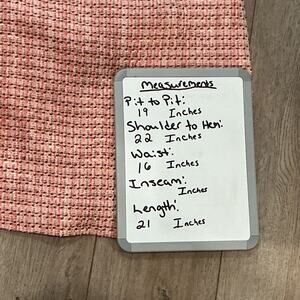 Measurements
Pit to Pit:
19 Inches
Shoulder to Hem:
22 Inches
Waist:
16 Inches
Inseam:
Inches
Length:
21 Inches